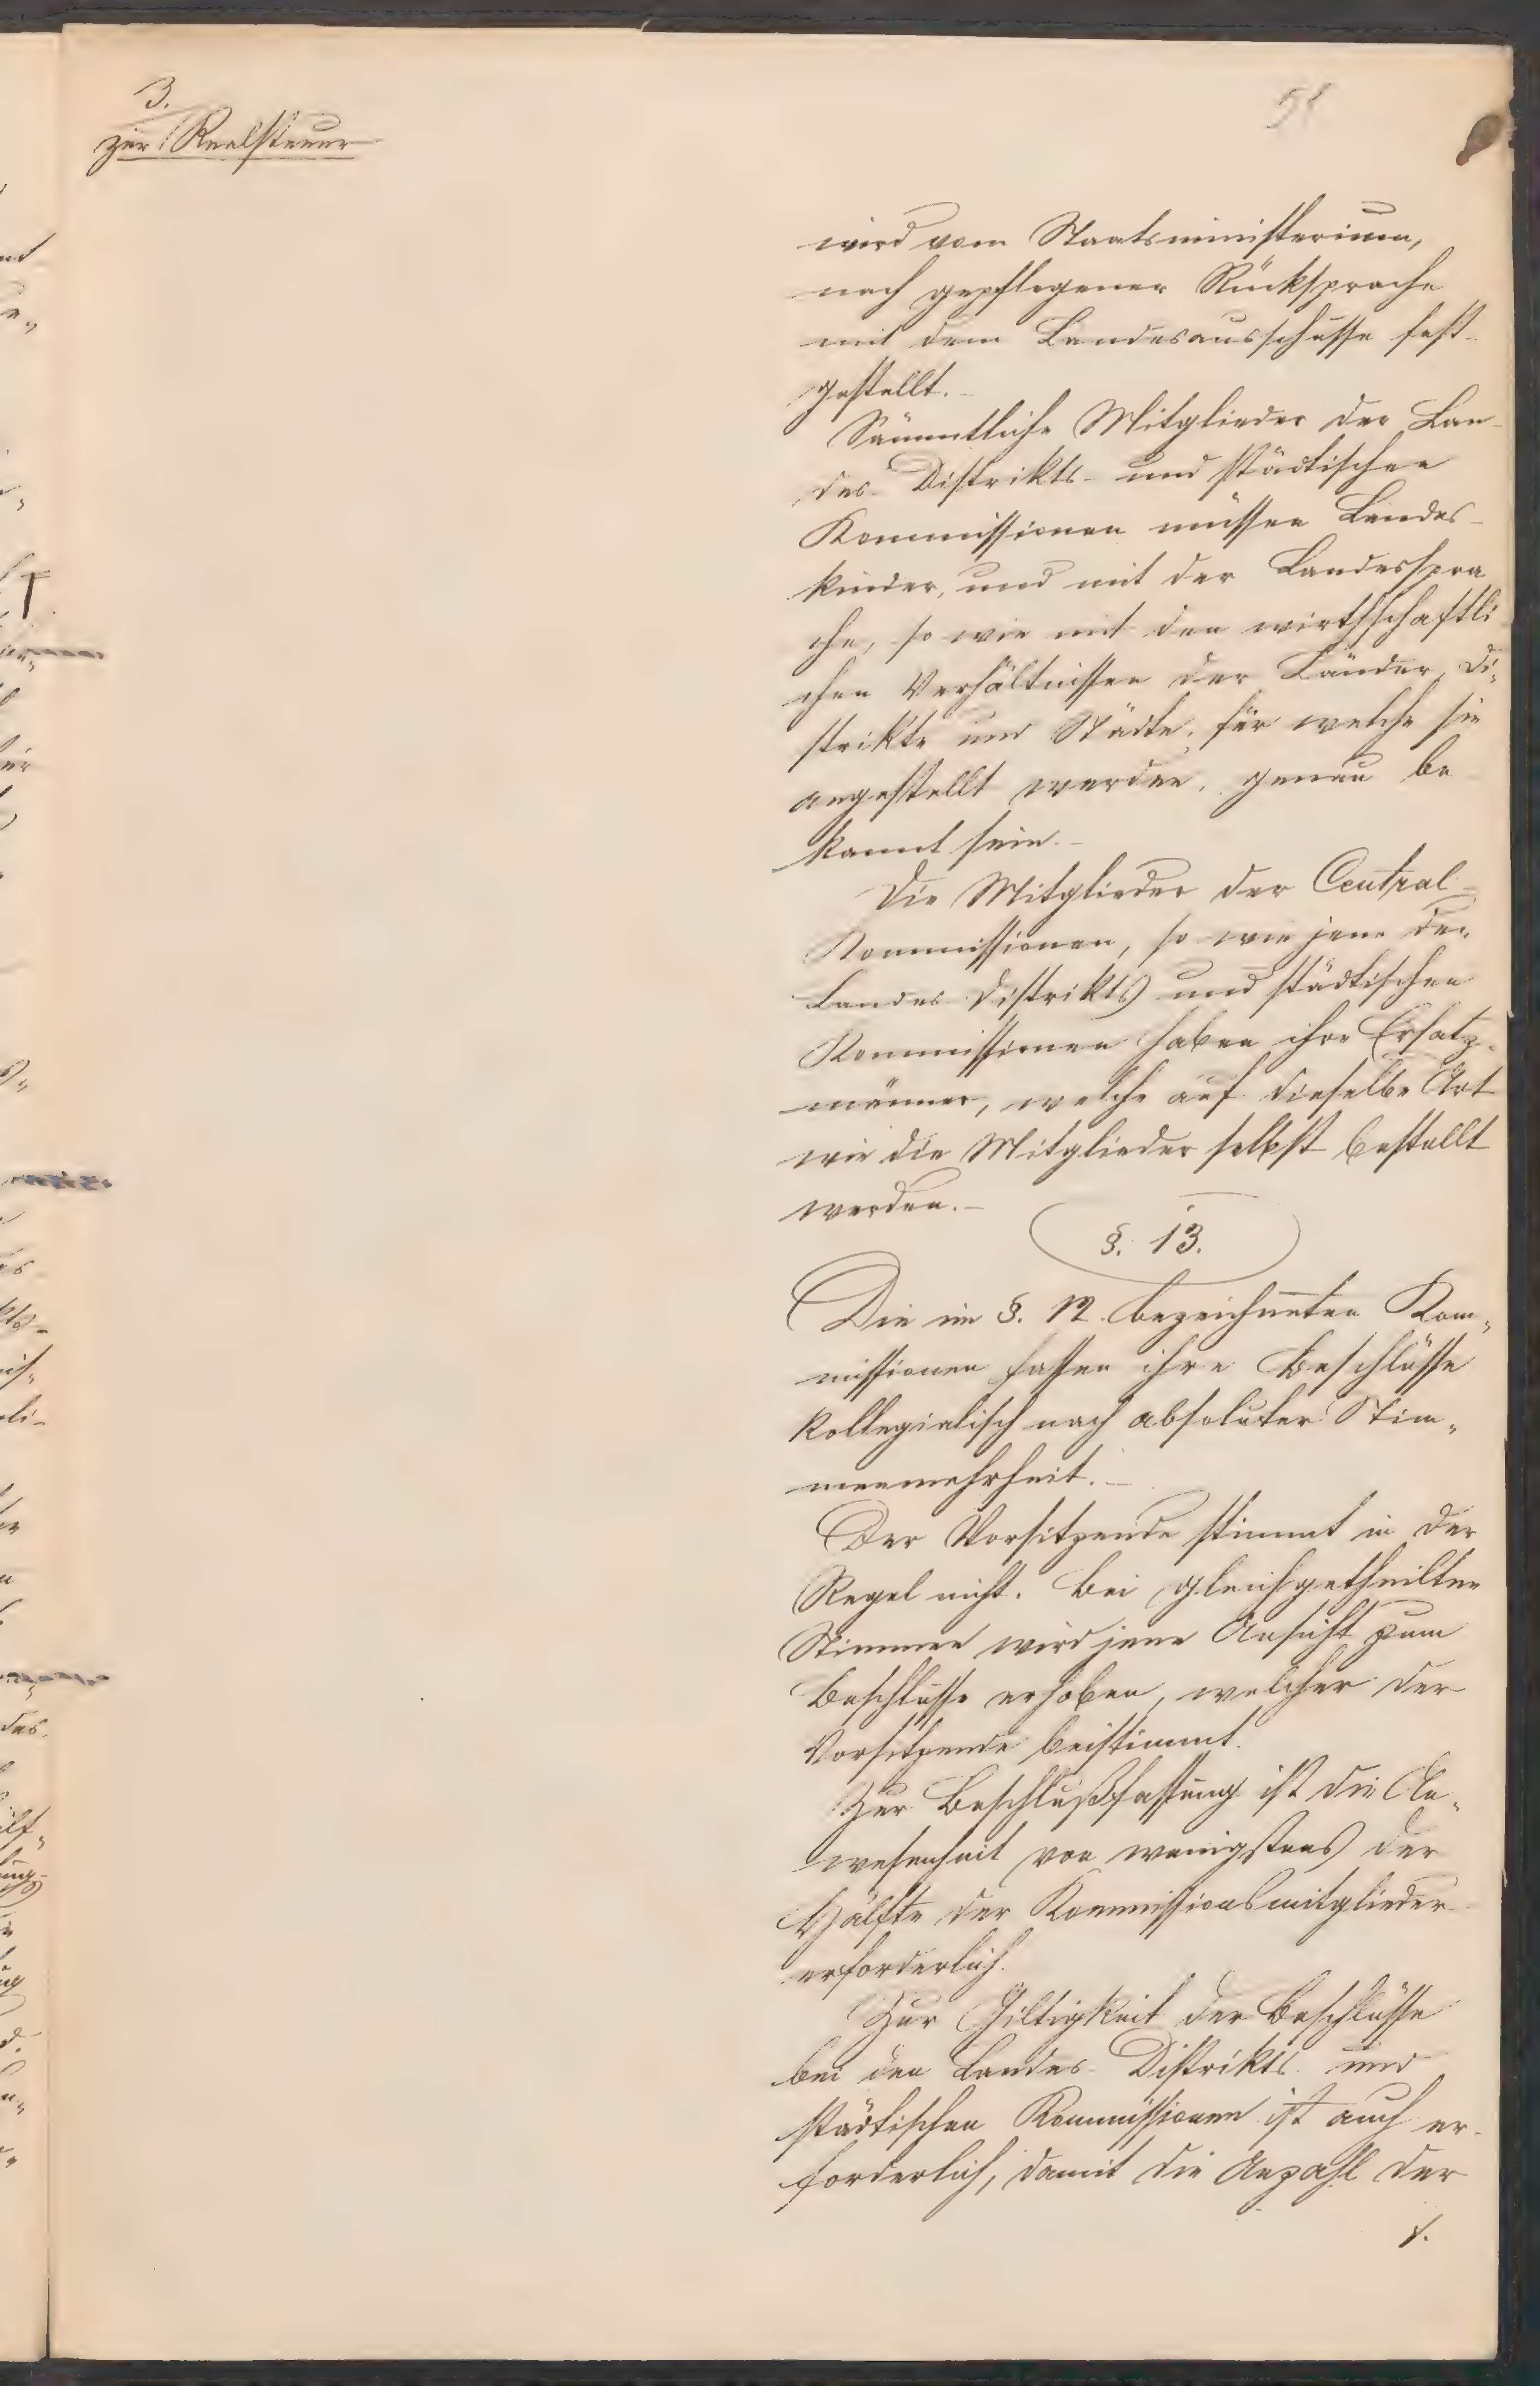 3.
zur Realsteuer
51
wird vom Staatsministerium,
nach gepflogener Rücksprache
mit dem Landesausschusse fest-
gestellt.-
Sämmtliche Mitglieder der Lan-
des- Distrikts- und städtischen
Kommissionen müssen Landes-
kinder, und mit der Landesspra
che, so wie mit den wirthschaftli
chen Verhältnissen der Länder, Di„
strikte und Städte, für welche sie
angestellt werden, genau be
kannt sein.-
Die Mitglieder der Central-
Kommissionen, so wie jene der
Landes Distrikts und städtischen
Kommissionen haben ihre Ersatz-
männer, welche auf dieselbe Art
wie die Mitglieder selbst bestellt
werden.-
§. 13.
Die im §. 12. bezeichneten Kom„
missionen fassen ihre Beschlüsse
kollegialisch nach absoluter Stim„
menmehrheit.-
Der Vorsitzende stimmt in der
Regel nicht. Bei gleichgetheilten
Stimmen wird jene Ansicht zum
Beschlusse erhoben, welcher der
Vorsitzende beistimmt.
Zur Beschlußfassung ist die An„
wesenheit von wenigstens der
Hälfte der Kommissionsmitglieder
erforderlich.
Zur Giltigkeit der Beschlüsse
bei den Landes- Distrikts und
städtischen Kommissionen ist auch er-
forderlich, damit die Anzahl der